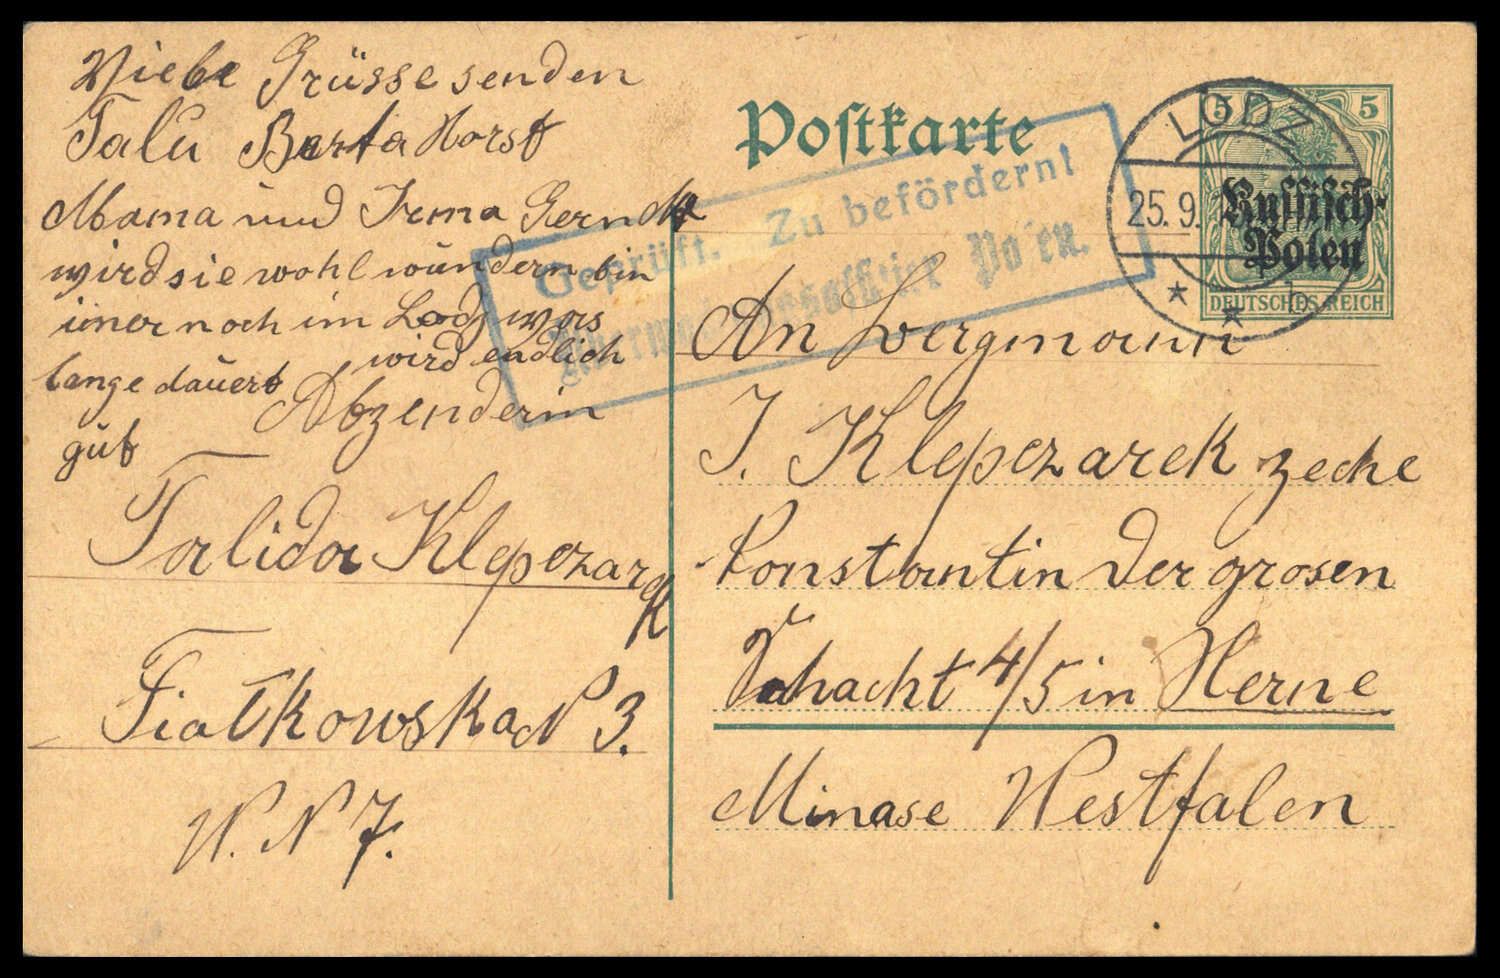 Viele Grüsse senden
Talu Berta Horst
Mama und Irma Gerndk
wird sie wohl wundern bin
imer noch im Lodz was
lange dauert wird endlich
gut
Abzenderin
Talida Klepczarek
Fiałkowska N 3.
W. N 7.
Postkarte
Geprüft. Zu befördern!
Polen.
LODZ
25.9.
5 5
Russisch-
Polen
DEUTSCHES REICH
b
An Bergmann
J. Klepczarek zeche
Konstantin der grosen
Schacht 4/5 in Herne
Minase Westfalen